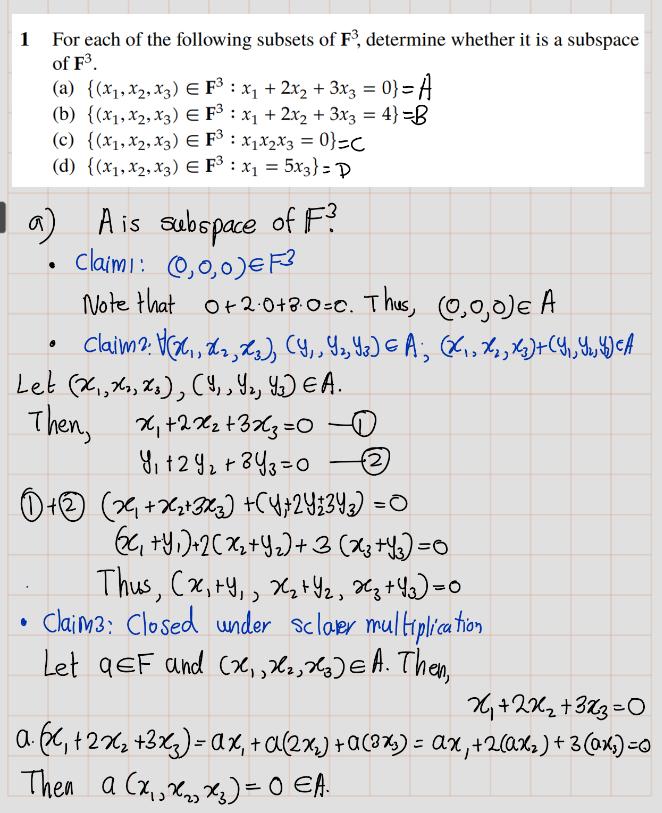 1 For each of the following subsets of F³, determine whether it is a subspace
of F³.
(a) {(x₁, x₂, x₃) ∈ F³ : x₁ + 2x₂ + 3x₃ = 0} = A
(b) {(x₁, x₂, x₃) ∈ F³ : x₁ + 2x₂ + 3x₃ = 4} = B
(c) {(x₁, x₂, x₃) ∈ F³ : x₁x₂x₃ = 0} = C
(d) {(x₁, x₂, x₃) ∈ F³ : x₁ = 5x₃} = D
a) A is subspace of F³?
• Claim1: (0,0,0) ∈ F³
Note that 0+2·0+3·0=0. Thus, (0,0,0) ∈ A
• Claim2: ∀(x₁, x₂, x₃), (y₁, y₂, y₃) ∈ A; (x₁, x₂, x₃)+(y₁, y₂, y₃) ∈ A
Let (x₁, x₂, x₃), (y₁, y₂, y₃) ∈ A.
Then, x₁+2x₂+3x₃=0 —①
y₁+2y₂+3y₃=0 —②
①+② (x₁+x₂+3x₃)+(y₁+2y₂+3y₃)=0
(x₁+y₁)+2(x₂+y₂)+3(x₃+y₃)=0
Thus, (x₁+y₁, x₂+y₂, x₃+y₃)=0
• Claim3: Closed under sclaler multiplication
Let a∈F and (x₁, x₂, x₃) ∈ A. Then,
x₁+2x₂+3x₃=0
a·(x₁+2x₂+3x₃)=ax₁+a(2x₂)+a(3x₃)=ax₁+2(ax₂)+3(ax₃)=0
Then a(x₁, x₂, x₃)=0 ∈A.